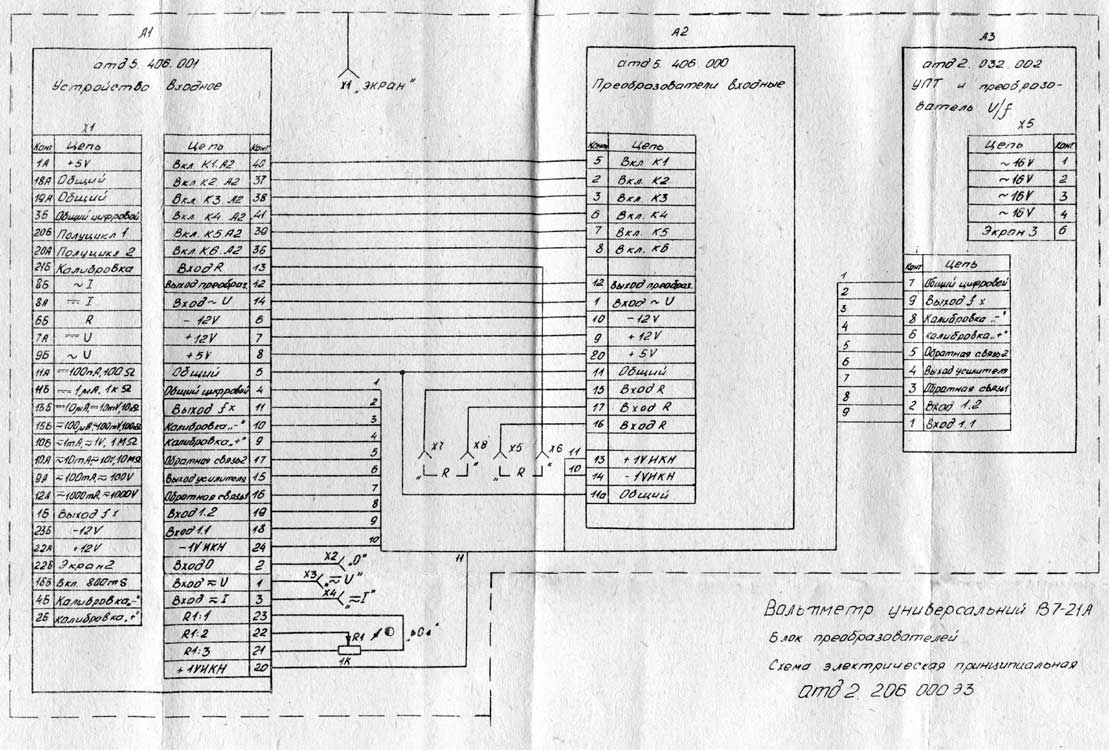 А1
атд5. 406. 001
Устройство входное
Х1
Конт Цепь
1А +5V
18А Общий
19А Общий
3Б Общий цифровой
20Б Полуцикл 1
20А Полуцикл 2
21Б Калибровка
8Б ~ I
8А ⎓ I
6Б R
7А ⎓ U
9Б ~ U
11А ⎓100nA, 100Ω
11Б ⎓1μA, 1кΩ
10Б ≂1mA, ≂1V, 1MΩ
9А ≂100mA, ≂100V
12А ≂1000mA, ≂1000V
1Б Выход fx
23Б -12V
22А +12V
22Б Экран 2
Вкл. 800mS
4Б Калибровка„-"
2Б Калибровка„+"
Цепь Конт
Вкл. К1.А2 40
Вкл К2 А2 37
Вкл К3. А2 38
Вкл К4 А2 41
Вкл. К5 А2 39
Вкл К6. А2 36
Вход R 13
Выход преобраз. 12
Вход ~ U 14
- 12V 6
+12V 7
+5V 8
Общий 5
Общий цифровой 4
Выход fx 11
Калибровка„-" 10
Калибровка„+" 9
Обратная связь2 17
Выход усилителя 15
Обратная связь1 16
Вход 1.2 19
Вход 1.1 18
-1V ИКН 24
Вход 0 2
Вход ≂ U 1
Вход ≂ I 3
R1:1 23
R1:2 22
R1:3 21
+1V ИКН 20
Х1 „ЭКРАН"
1
2
3
4
5
6
7
8
9
10
11
Х2 „0"
Х3 „≂U"
Х4 „≂I"
R1
1К
„▷0◁"
Х7
Х8
Х5
Х6
„ R "
„ R "
11
10
А2
атд5. 406. 000
Преобразователи входные
Конт Цепь
5 Вкл К1
2 Вкл. К2
3 Вкл. К3
6 Вкл. К4
7 Вкл. К5
8 Вкл. К6
12 Выход преобраз.
1 Вход ~ U
10 -12V
9 +12V
20 +5V
11 Общий
15 Вход R
17 Вход R
16 Вход R
13 +1V ИКН
14 -1V ИКН
11а Общий
А3
атд2. 032. 002
УПТ и преобразо-
ватель U/f
Х5
Цепь Конт
~16V 1
~16V 2
~16V 3
~16V 4
Экран 3 6
1
2
3
4
5
6
7
8
9
Конт Цепь
7 Общий цифровой
9 Выход fx
8 Калибровка„-"
6 Калибровка„+"
5 Обратная связь2
4 Выход усилителя
3 Обратная связь1
2 Вход 1.2
1 Вход 1.1
Вольтметр универсальний В7-21А
Блок преобразователей
Схема электрическая принципиальная
атд2. 206 000 Э3